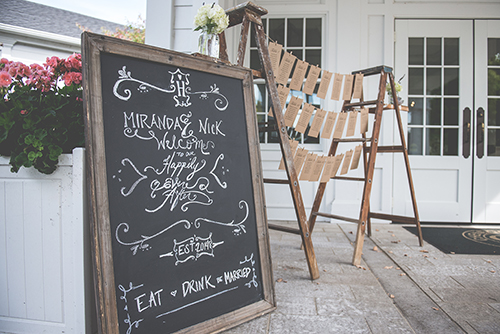 H
MIRANDA & NICK
Welcome
to our
Happily
Ever
After
EST. 2014
EAT ♥ DRINK & BE MARRIED